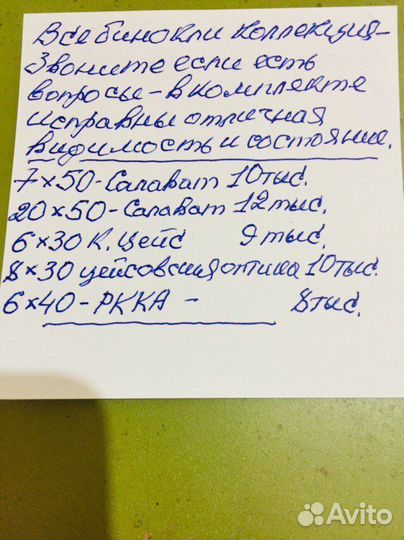 Все бинокли коллекция-
Звоните если есть
вопросы - в комплекте
исправны отличная
видимость и состояние.
7×50 - Салават 10 тыс.
20×50 - Салават 12 тыс.
6×30 К. Цейс 9 тыс.
8×30 цейсовская оптика 10 тыс.
6×40 - РККА - 8 тыс.
Avito